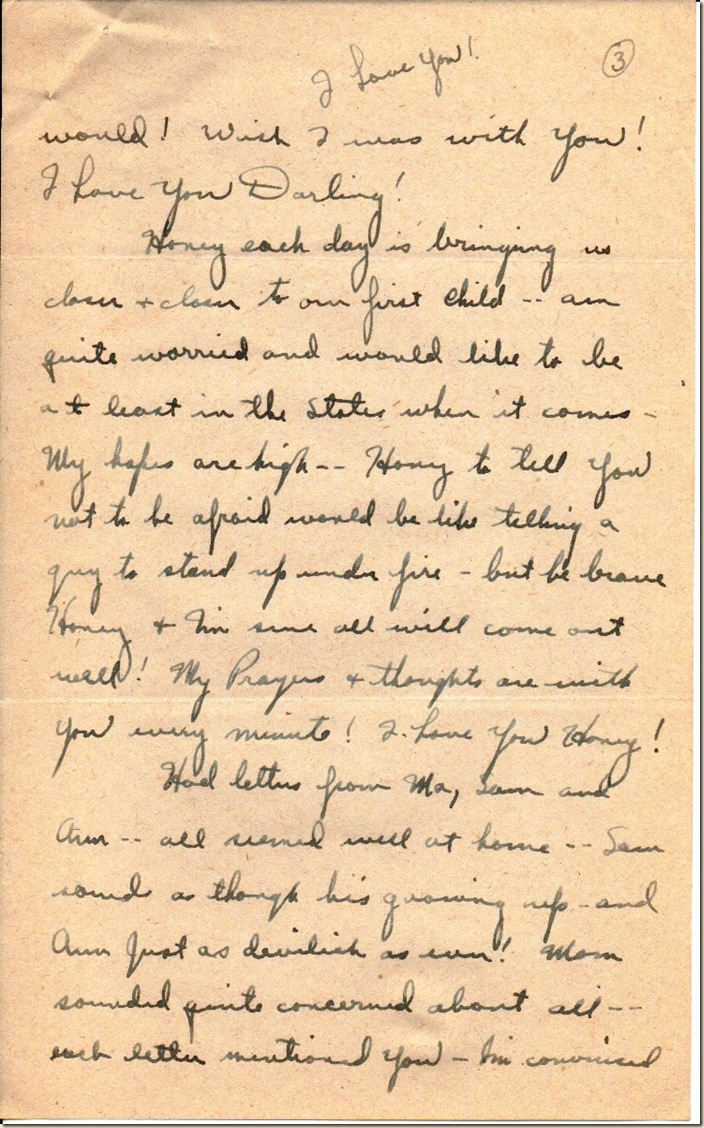 I Love You!
3
would! Wish I was with You!
I Love You Darling!
Honey each day is bringing us
closer + closer to our first child -- am
quite worried and would like to be
at least in the States when it comes -
My hopes are high -- Honey to tell You
not to be afraid would be like telling a
guy to stand up under fire - but be brave
Honey + I'm sure all will come out
well! My Prayers + thoughts are with
You every minute! I love You Honey!
Had letters from Ma, Sam and
Ann -- all seemed well at home -- Sam
sounds as though his growing up - and
Ann Just as devilish as ever! Mom
sounded quite concerned about all --
each letter mentioned You - I'm convinced